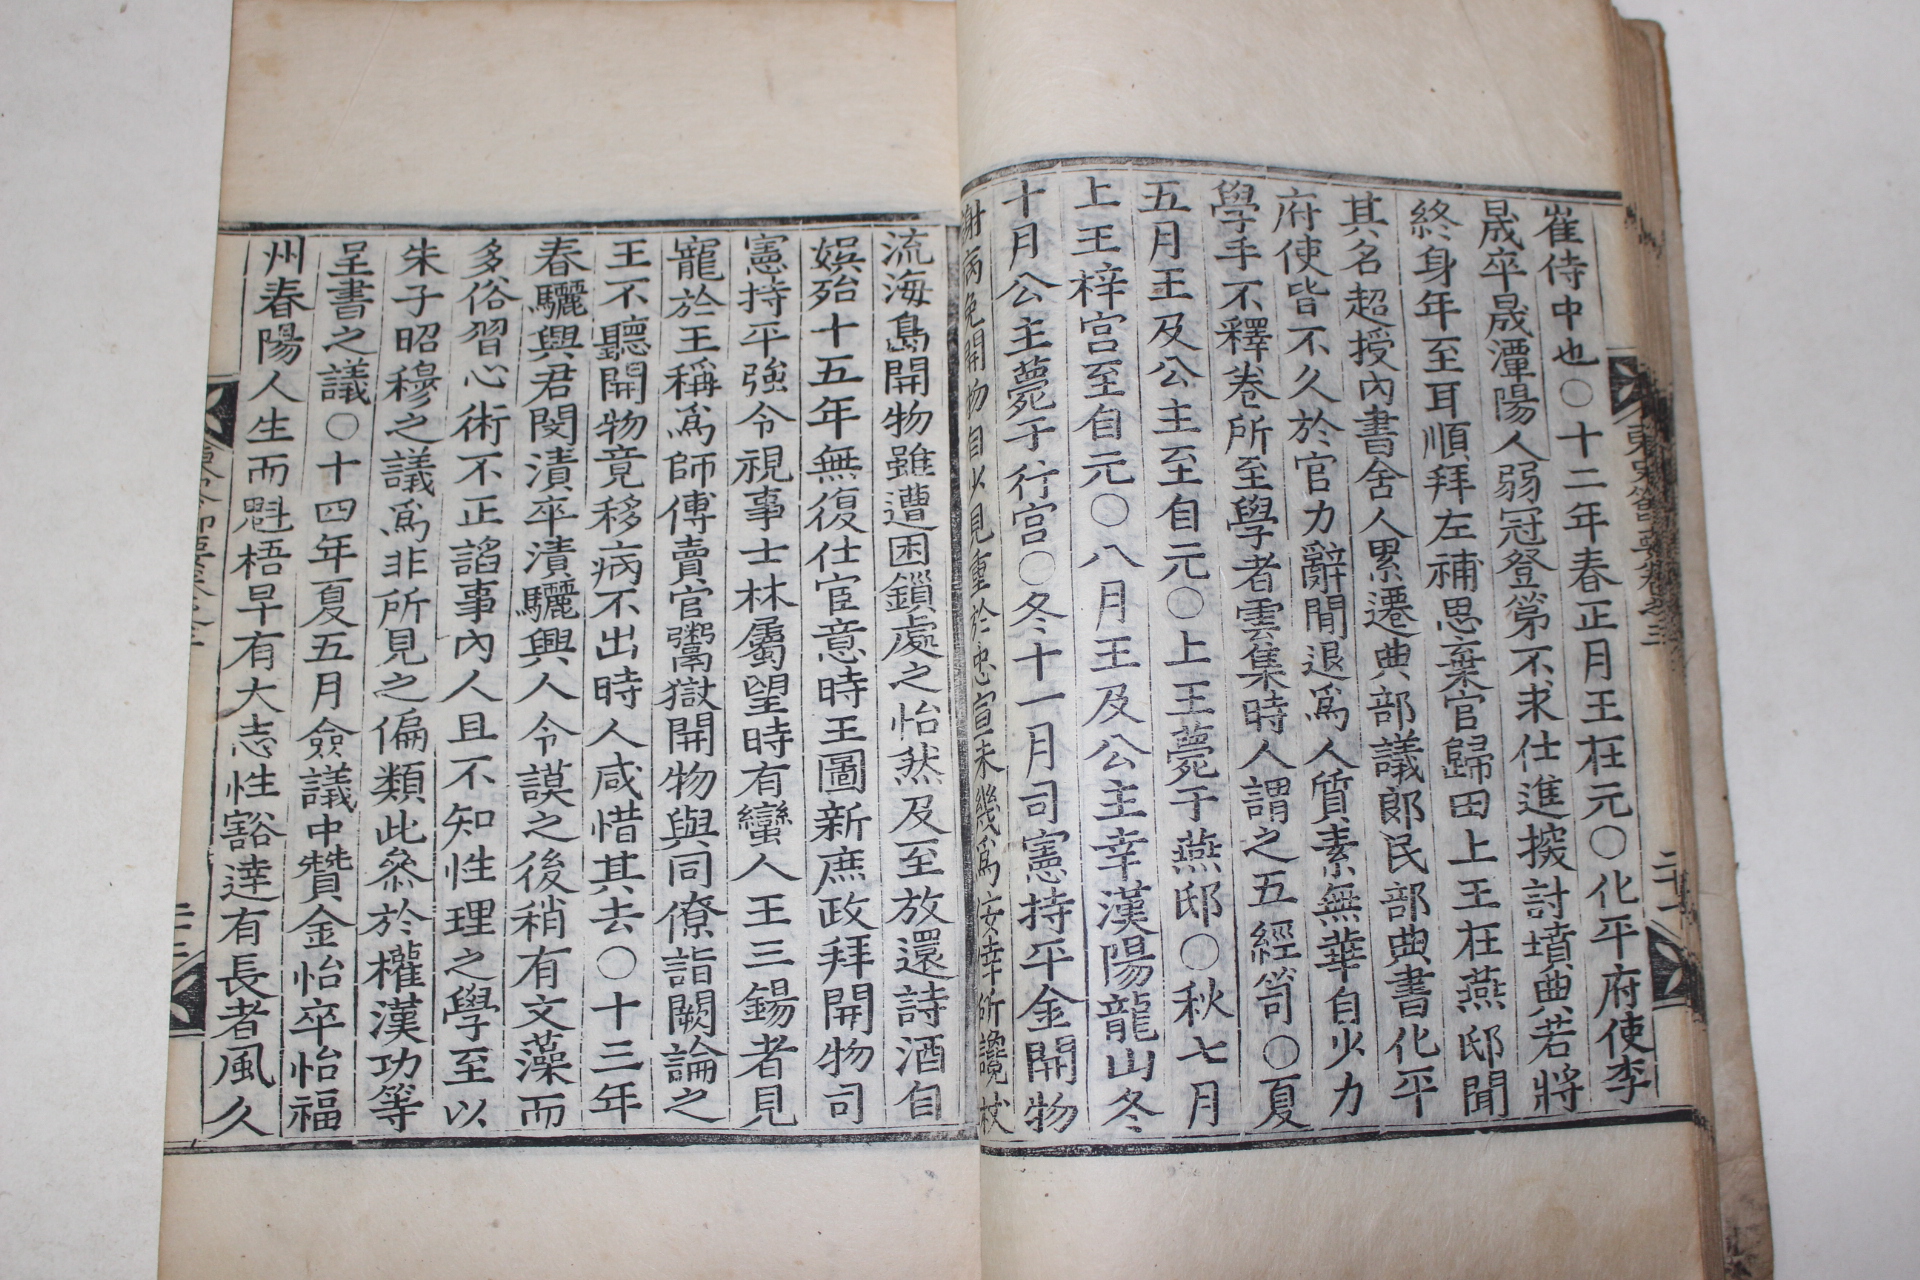 崔侍中也○十二年春正月王在元○化平府使李
晟卒晟潭陽人弱冠登第不求仕進掞討墳典若將
終身年至耳順拜左補思棄官歸田上王在燕邸聞
其名超授內書舍人累遷典部議郎民部典書化平
府使皆不久於官力辭閒退爲人質素無華自火力
學手不釋卷所至學者雲集時人謂之五經笥○夏
五月王及公主至自元○上王薨于燕邸○秋七月
上王梓宮至自元○八月王及公主幸漢陽龍山冬
十月公主薨于行宮○冬十一月司憲持平金開物
謝病免開物自以見重於忠宣未幾爲安幸所讒杖
流海島開物雖遭困鎖處之怡然及至放還詩酒自
娛殆十五年無復仕宦意時王圖新庶政拜開物司
憲持平強令視事士林屬望時有蠻人王三錫者見
寵於王稱爲師傅賣官鬻獄開物與同僚詣闕論之
王不聽開物竟移病不出時人咸惜其去○十三年
春驪興君閔漬卒漬驪興人令謨之後稍有文藻而
多俗習心術不正諂事內人且不知性理之學至以
朱子昭穆之議爲非所見之偏類此叅於權漢功等
呈書之議○十四年夏五月僉議中贊金怡卒怡福
州春陽人生而魁梧早有大志性豁達有長者風久
東史會要卷之三
二十三